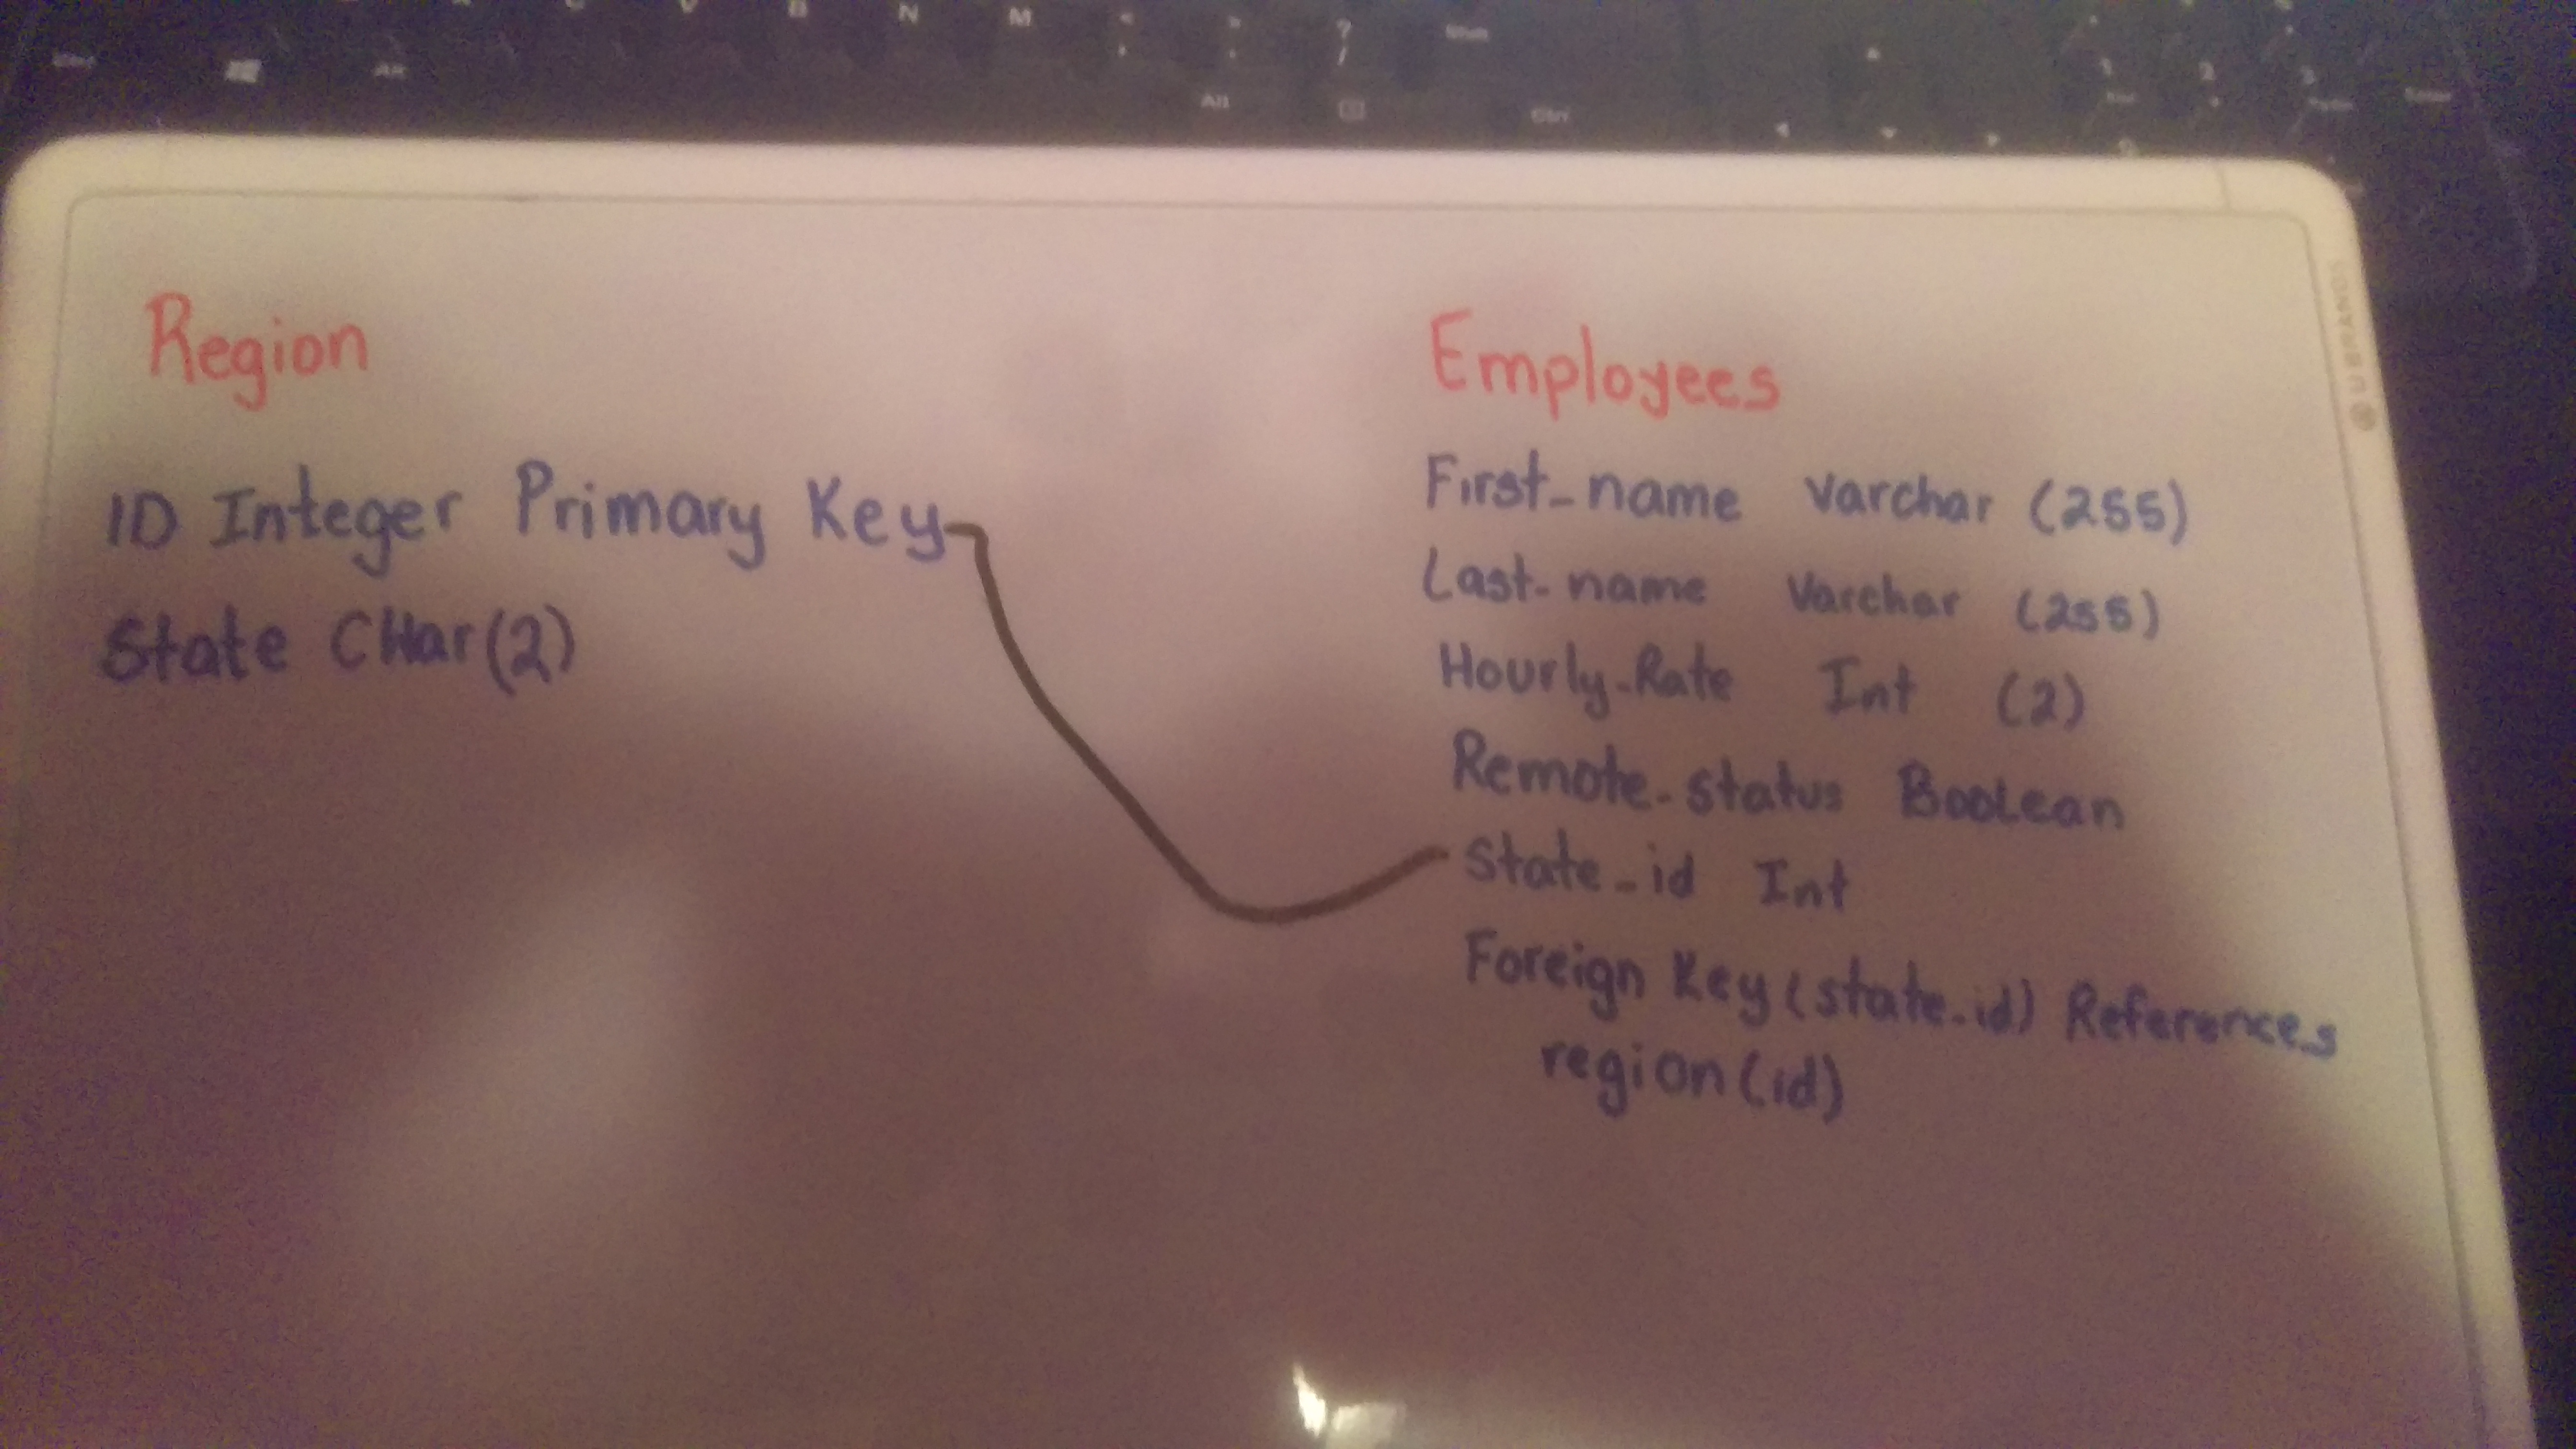 V B N M < > ? Shift
, . /
Alt 1 2 3
Alt Ctrl
U BRANDS
Region
ID Integer Primary Key
State CHar(2)
Employees
First_name Varchar (255)
Last_name Varchar (255)
Hourly_Rate Int (2)
Remote_status Boolean
State_id Int
Foreign Key (state_id) References
region(id)